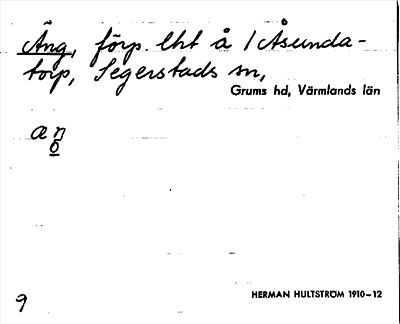 Äng, förp. lht å 1 Åsunda-
torp, Segerstads sn,
Grums hd, Värmlands län
æ ŋ
o
9
HERMAN HULTSTRÖM 1910–12